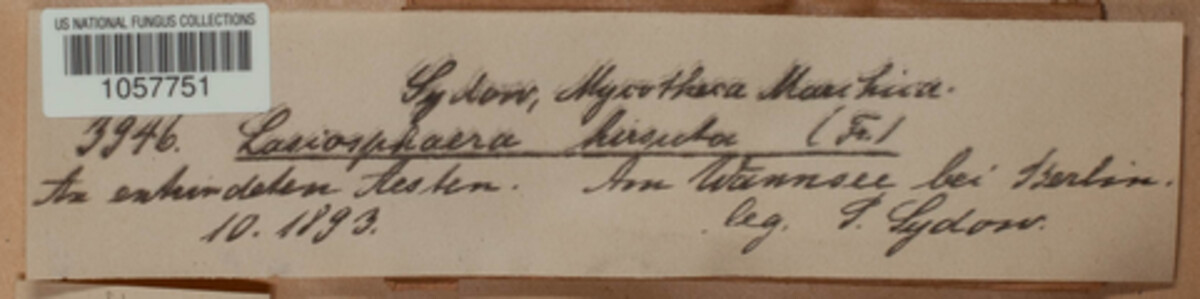 US NATIONAL FUNGUS COLLECTIONS
1057751
Sydow, Mycotheca Marchica.
3946. Lasiosphaera hirsuta (Fr.)
An entrindeten Aesten. Am Wannsee bei Berlin.
10. 1893. leg. P. Sydow.